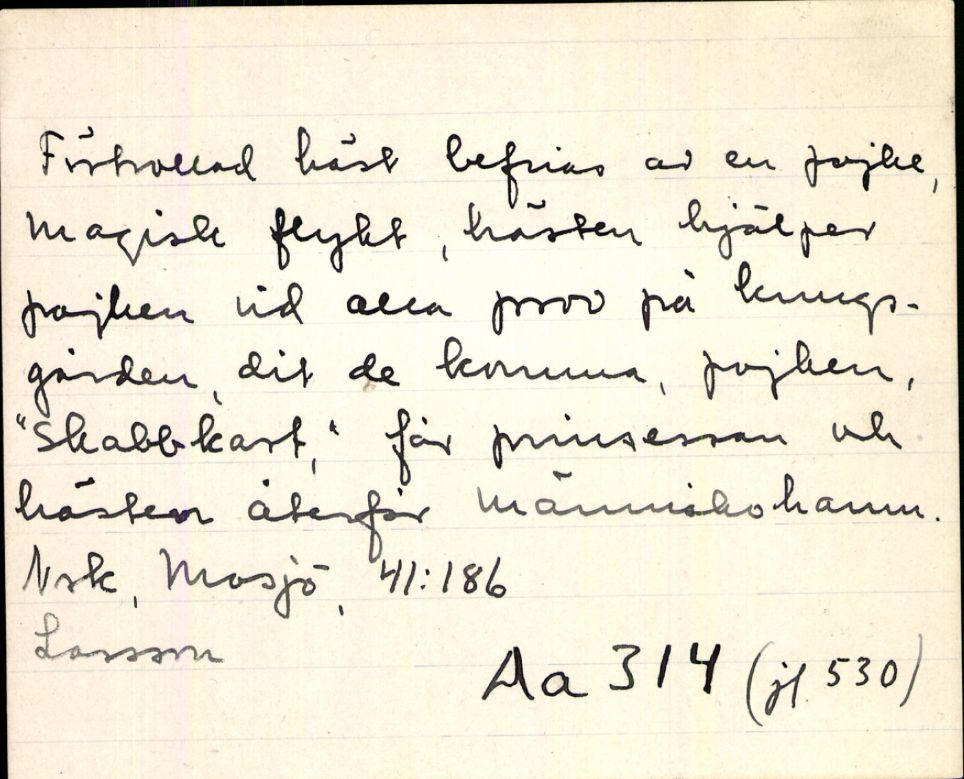 Förtrollad häst befrias av en pojke,
magisk flykt, hästen hjälper
pojken vid alla prov på kungs-
gården, dit de komma, pojken,
"Skabbkart," får prinsessan och
hästen återfår människohamn.
Nrk, Mosjö, 41:186
Larsson
Aa 314 (jf. 530)